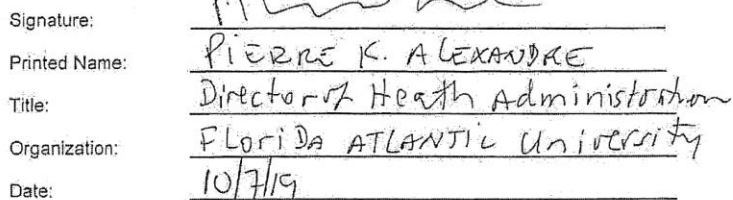 Signature:
Printed Name: PIERRE K. ALEXANDRE
Title: Director of Heath Administration
Organization: FLoriDA ATLANTIC University
Date: 10/7/19